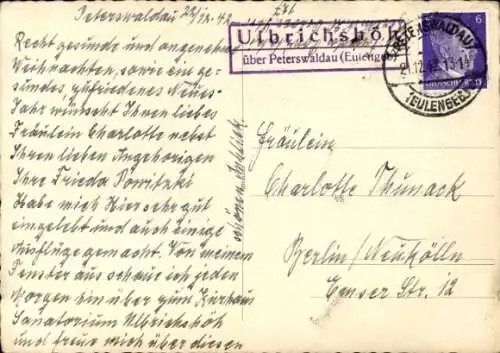 Peterswaldau 22/12. 42
Recht gesunde und angenehme
Weihnachten, sowie ein ge-
sundes, zufriedenes Neues-
Jahr wünscht Ihnen liebes
Fräulein Charlotte nebst
Ihren lieben Angehörigen
Ihre Frieda Powitzki
Habe mich hier sehr gut
eingelebt und auch einige
Ausflüge gemacht. Von meinem
Fenster aus schaue ich jeden
Morgen ein über zum Kurhaus
Sanatorium Ulbrichshöh
und freue mich über diesen
schönen Anblick.
Ulbrichshöh
über Peterswaldau (Eulenge
PETERSWALDAU
21.12. 13-14
(EULENGEB.)
6
Fräulein
Charlotte Thunack
Berlin/Neukölln
Emser Str. 12